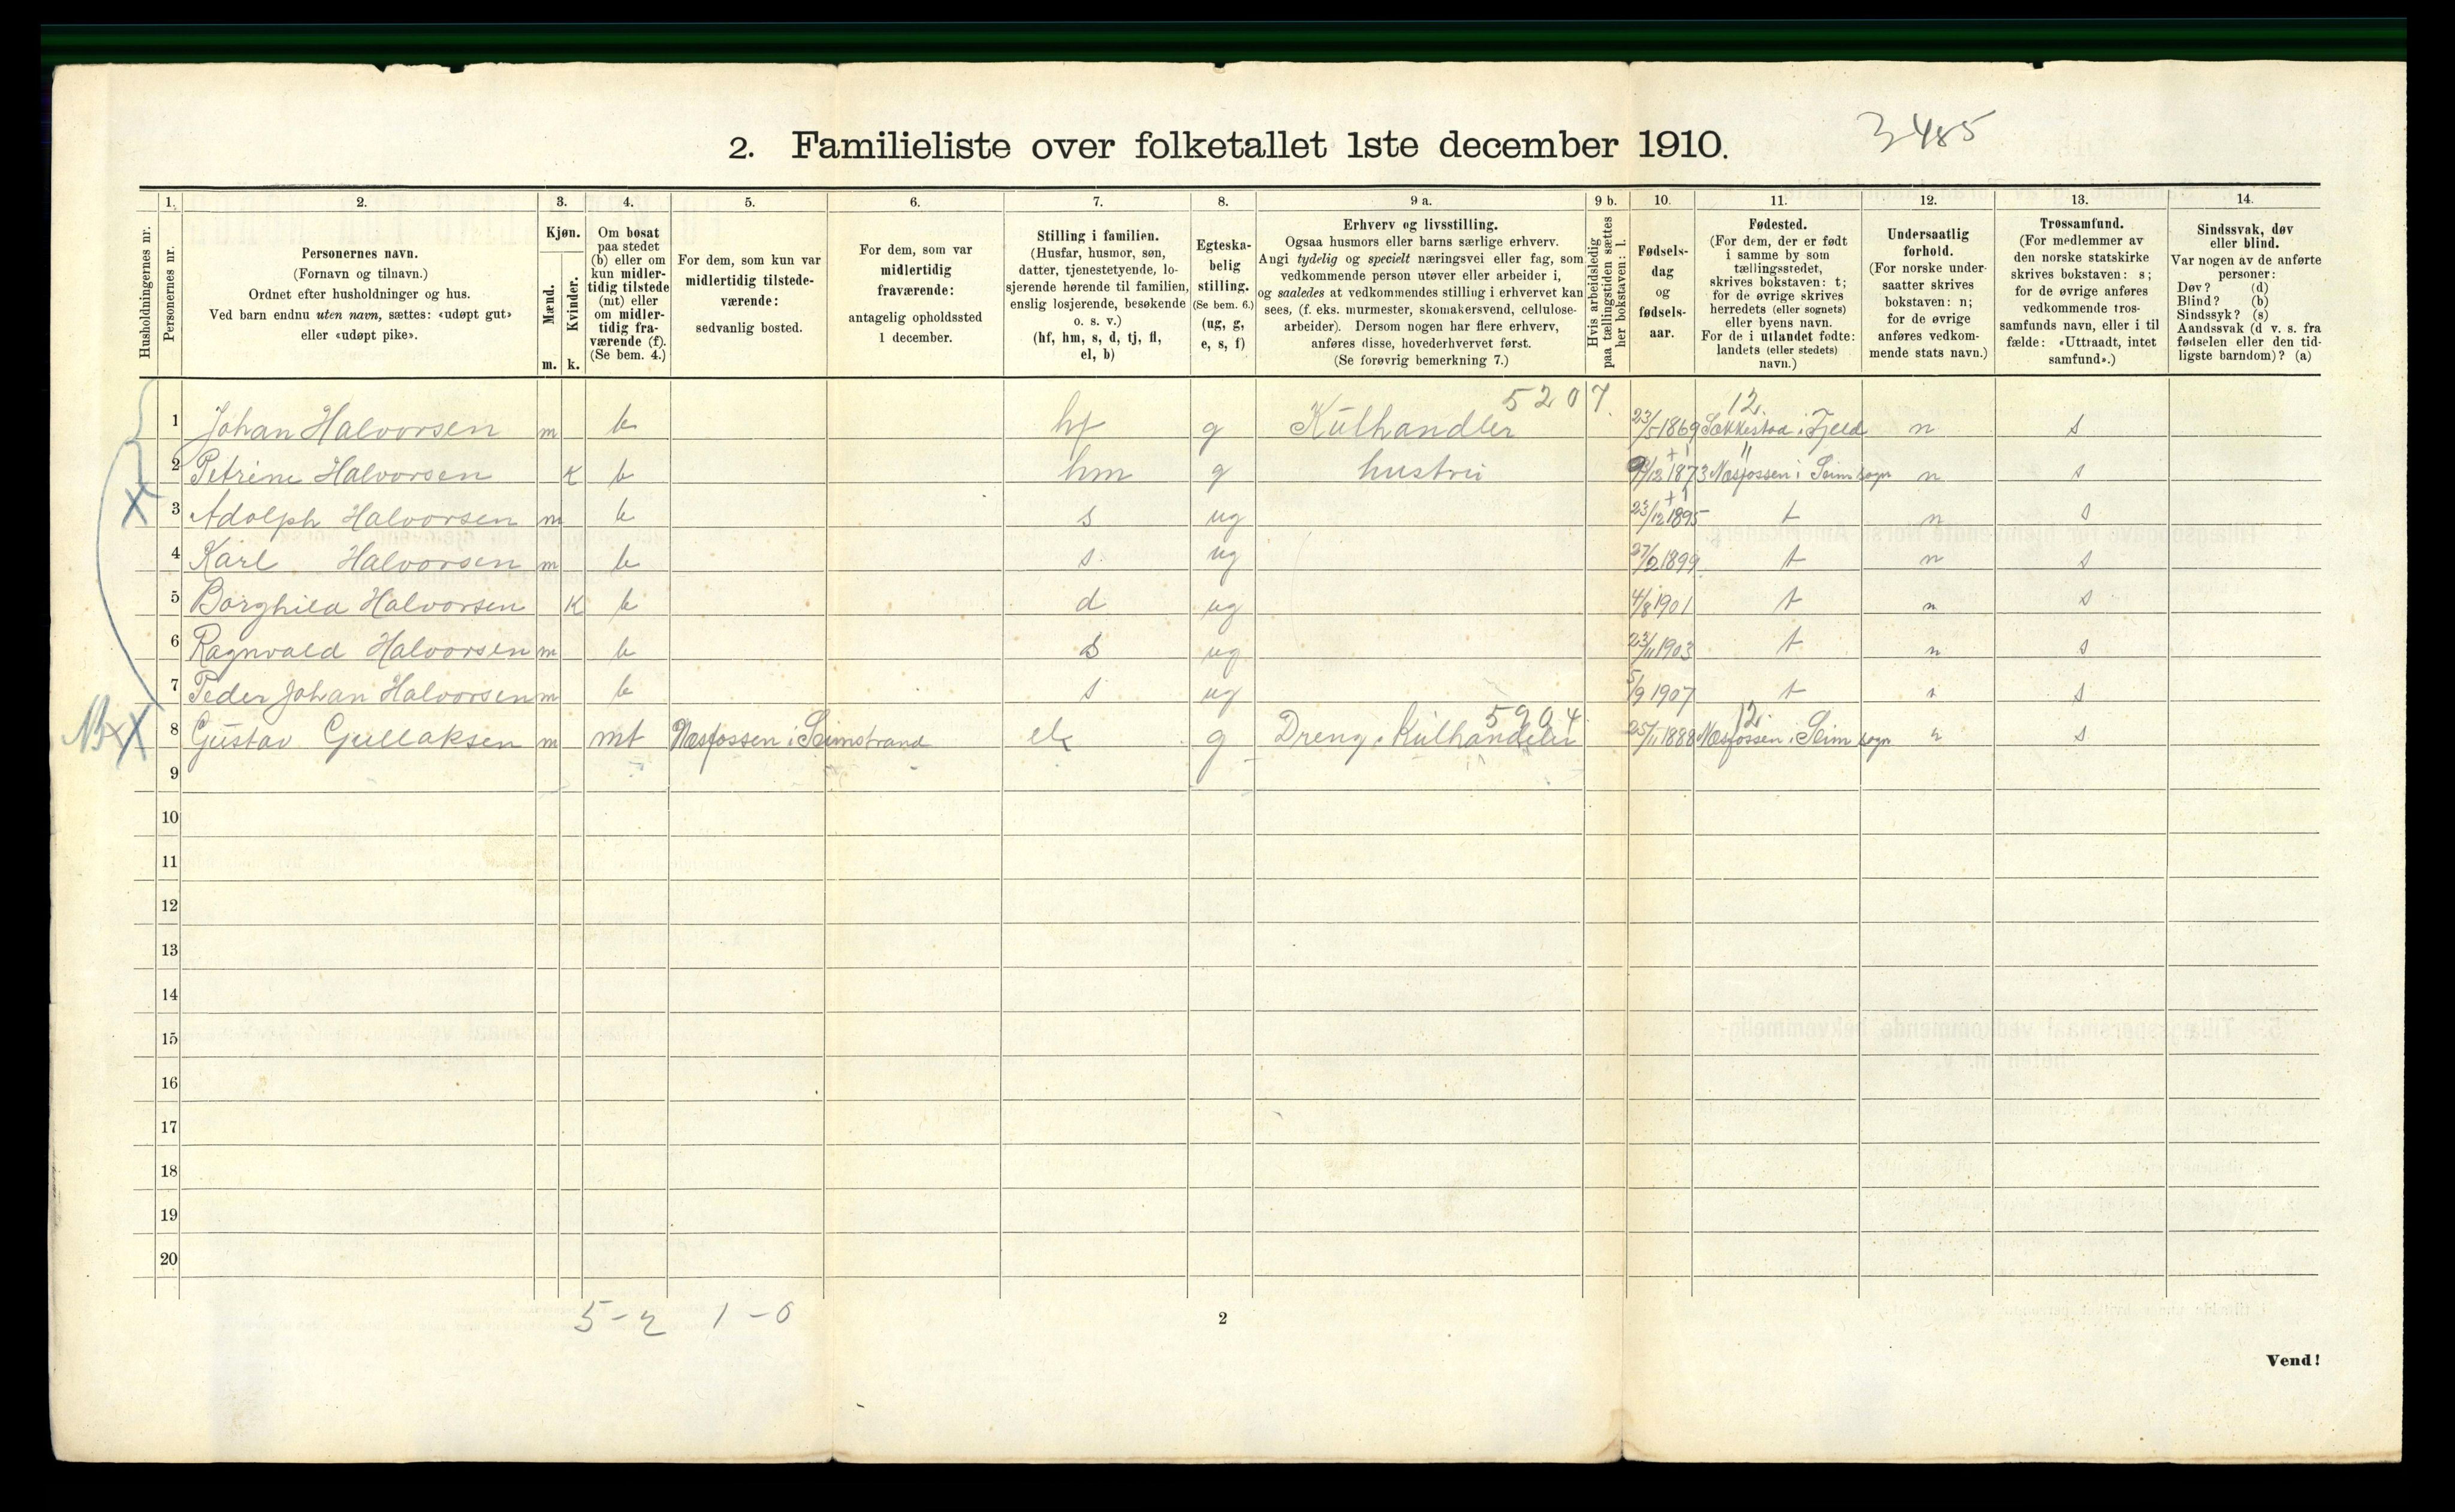 3485
2. Familieliste over folketallet 1ste december 1910.
Husholdningernes nr.
1. Personernes nr.
2. Personernes navn.
(Fornavn og tilnavn.)
Ordnet efter husholdninger og hus.
Ved barn endnu uten navn, sættes: «udøpt gut»
eller «udøpt pike».
3. Kjøn.
Mænd. m.
Kvinder. k.
4. Om bosat
paa stedet
(b) eller om
kun midler-
tidig tilstede
(mt) eller
om midler-
tidig fra-
værende (f).
(Se bem. 4.)
5. For dem, som kun var
midlertidig tilstede-
værende:
sedvanlig bosted.
6. For dem, som var
midlertidig
fraværende:
antagelig opholdssted
1 december.
7. Stilling i familien.
(Husfar, husmor, søn,
datter, tjenestetyende, lo-
sjerende hørende til familien,
enslig losjerende, besøkende
o. s. v.)
(hf, hm, s, d, tj, fl,
el, b)
8. Egteska-
belig
stilling.
(Se bem. 6.)
(ug, g,
e, s, f)
9 a. Erhverv og livsstilling.
Ogsaa husmors eller barns særlige erhverv.
Angi tydelig og specielt næringsvei eller fag, som
vedkommende person utøver eller arbeider i,
og saaledes at vedkommendes stilling i erhvervet kan
sees, (f. eks. murmester, skomakersvend, cellulose-
arbeider). Dersom nogen har flere erhverv,
anføres disse, hovederhvervet først.
(Se forøvrig bemerkning 7.)
9 b. Hvis arbeidsledig
paa tællingstiden sættes
her bokstaven: l.
10. Fødsels-
dag
og
fødsels-
aar.
11. Fødested.
(For dem, der er født
i samme by som
tællingsstedet,
skrives bokstaven: t;
for de øvrige skrives
herredets (eller sognets)
eller byens navn.
For de i utlandet fødte:
landets (eller stedets)
navn.)
12. Undersaatlig
forhold.
(For norske under-
saatter skrives
bokstaven: n;
for de øvrige
anføres vedkom-
mende stats navn.)
13. Trossamfund.
(For medlemmer av
den norske statskirke
skrives bokstaven: s;
for de øvrige anføres
vedkommende tros-
samfunds navn, eller i til
fælde: «Uttraadt, intet
samfund».)
14. Sindssvak, døv
eller blind.
Var nogen av de anførte
personer:
Døv? (d)
Blind? (b)
Sindssyk? (s)
Aandssvak (d v. s. fra
fødselen eller den tid-
ligste barndom)? (a)
5207. 12.
1 Johan Halvorsen m b hf g Kulhandler 23/5 1869 i Fjeld n s
2 Petrine Halvorsen k b hm g hustru 9/12 1873 Næsfossen i Seim sogn n s
3 Adolph Halvorsen m b s ug 23/12 1895 t n s
4 Karl Halvorsen m b s. ug 27/2 1899 t n s
5 Borghild Halvorsen k b d ug 4/8 1901 t n s
6 Ragnvald Halvorsen m b s ug 23/11 1903 t n s
7 Peder Johan Halvorsen m b s ug 5/9 1907 t n s
5904. 12.
8 Gustav Gullaksen m mt Næsfossen i Seimstrand el g Dreng. Kulhandler 25/11 1888 Næsfossen i Seim sogn n s
9
10
11
12
13
14
15
16
17
18
19
20
5-2 1-0
2
Vend!